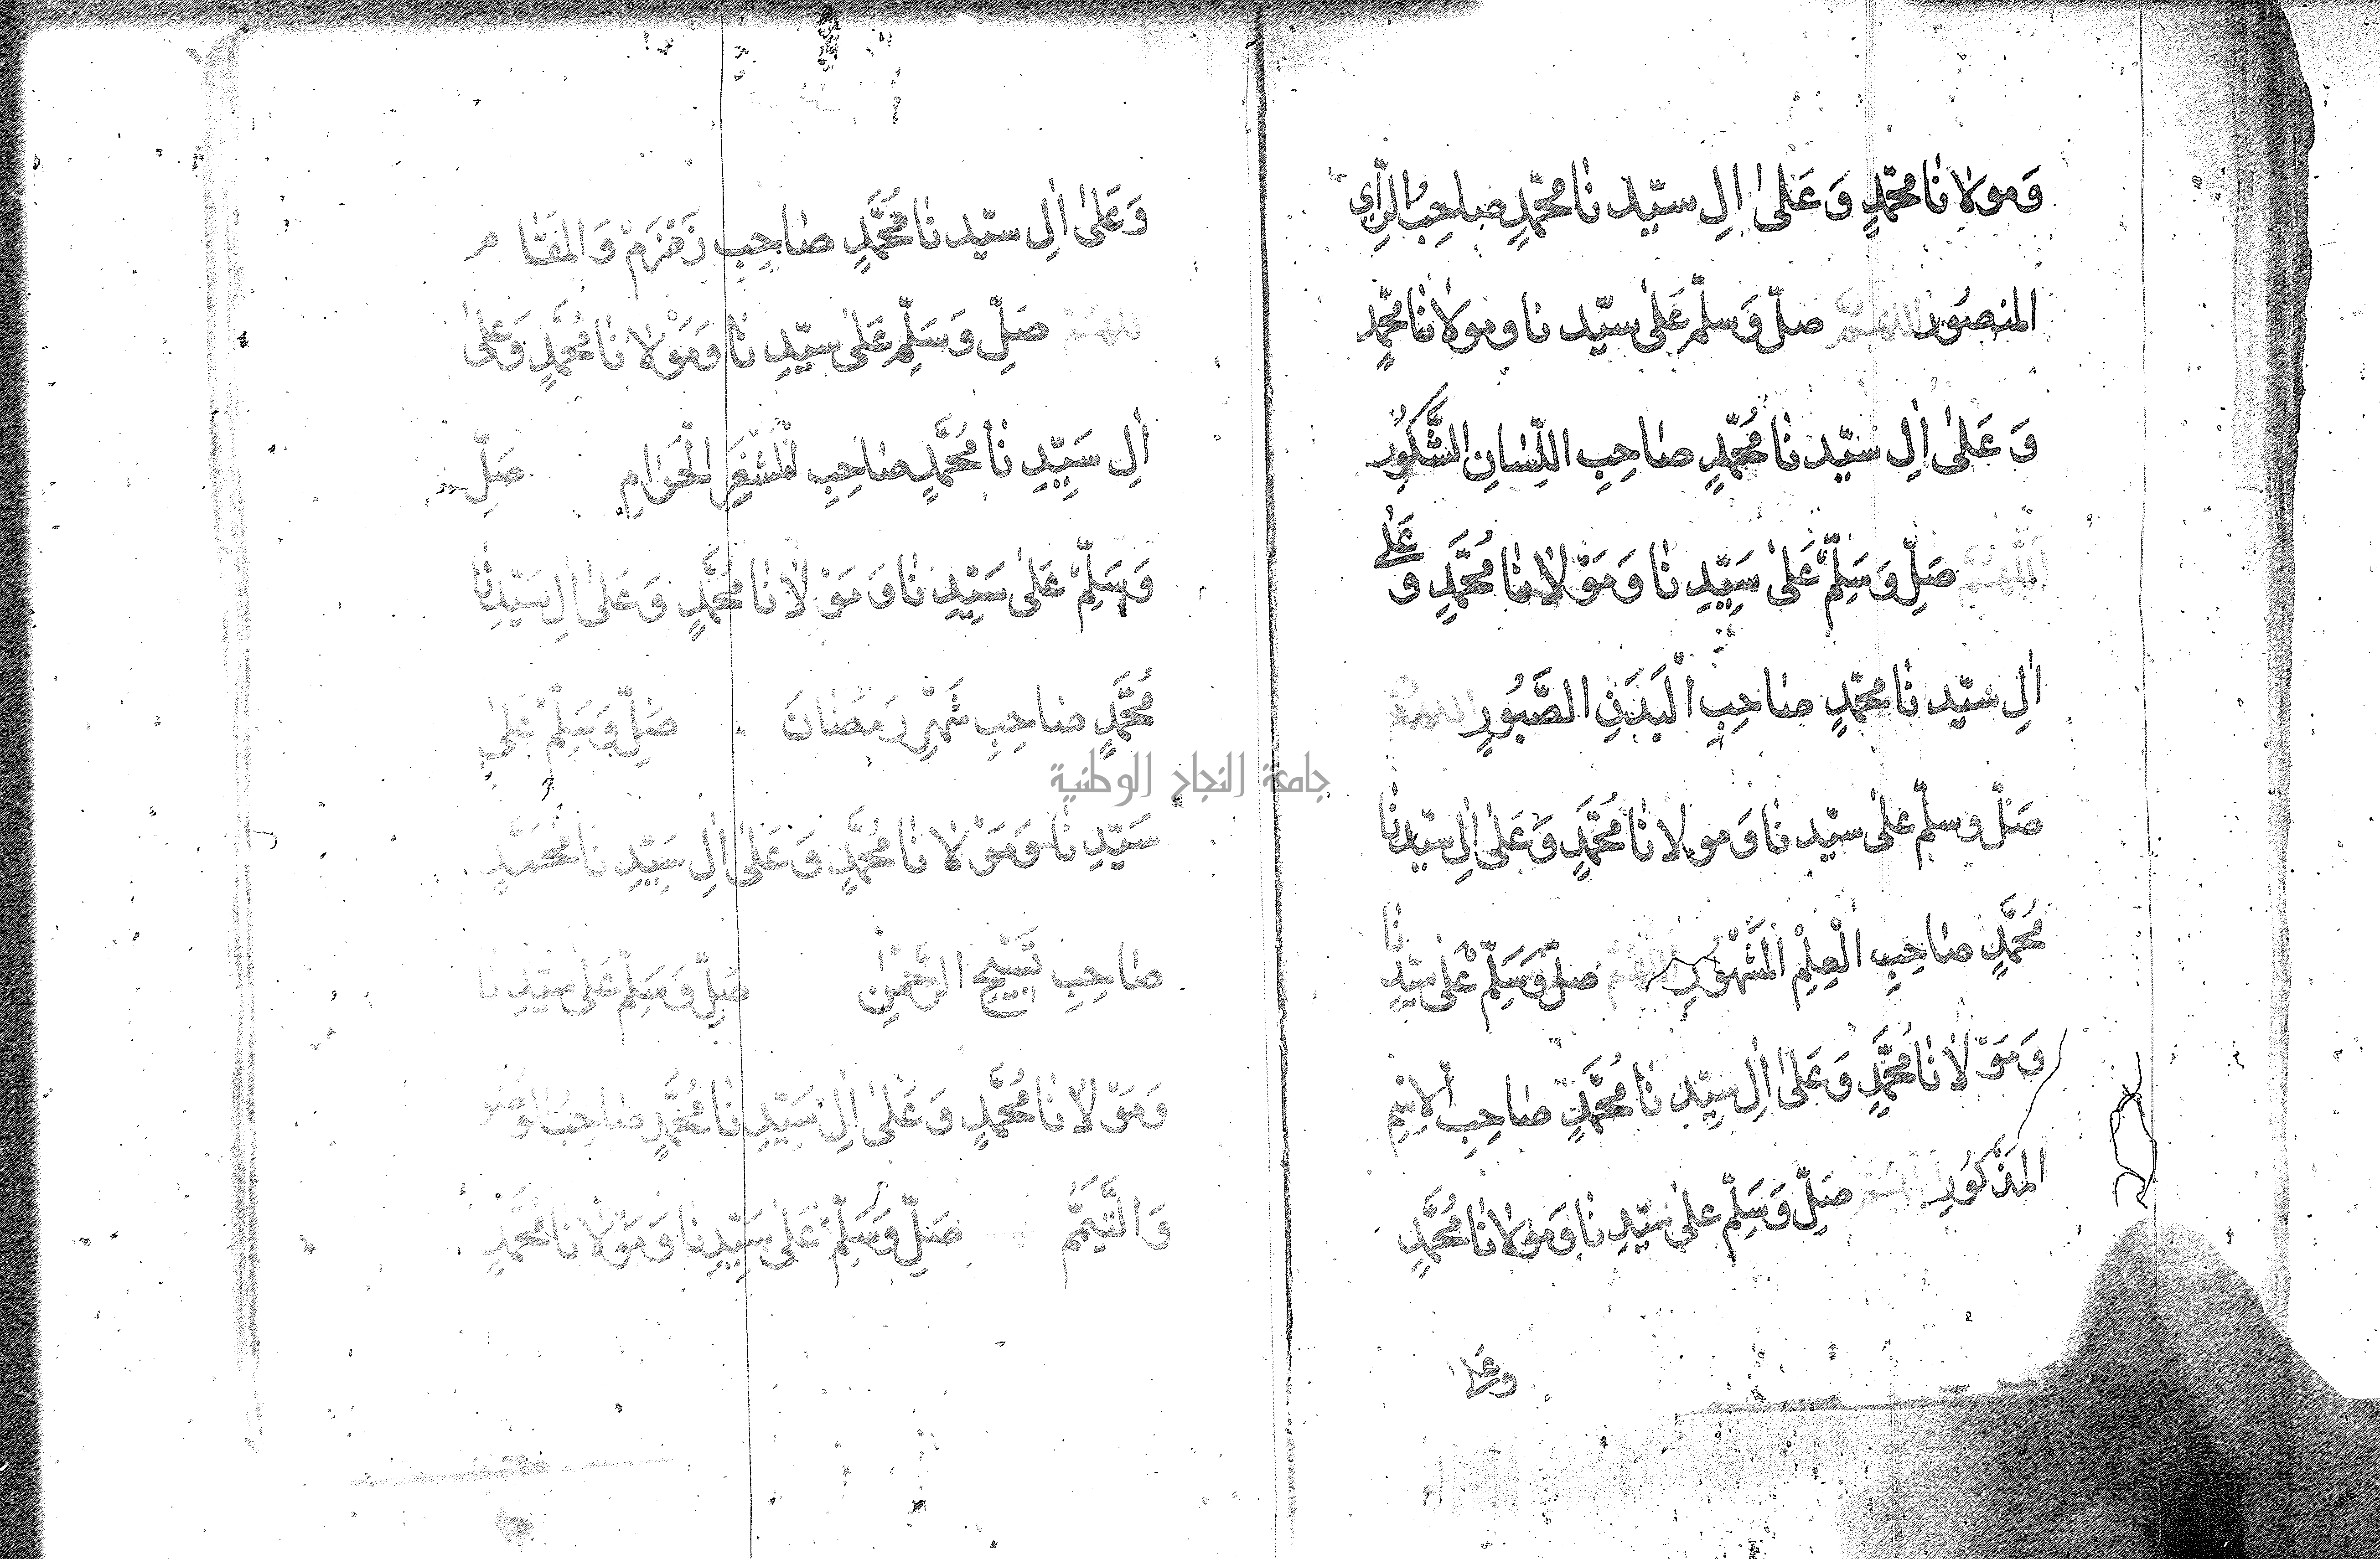 وَمولانا محمّدٍ وَعَلىٰ اٰلِ سيّدنا محمّدٍ صاحِبِ الرّاْيِ
المنصُور اللهمّ صلّ وَسلّم عَلىٰ سيّدنا ومولانا محمّدٍ
وَعَلىٰ اٰلِ سيّدنا مُحمّدٍ صاحِبِ اللّسانِ الشَّكُورِ
اللّهمّ صَلِّ وَسَلِّمْ عَلىٰ سَيِّدِنا وَمَوْلانا مُحَمَّدٍ وَعَلىٰ
اٰلِ سيّدنا محمّدٍ صاحِبِ الْبَدَنِ الصَّبُورِ اللهمّ
صَلّ وسلّم علىٰ سيّدنا وَمولانا مُحَمَّدٍ وَعَلىٰ اٰلِ سيّدنا
مُحَمَّدٍ صاحِبِ الْعِلْمِ الْمَشْهُورِ اللهمّ صلّ وَسَلِّمْ عَلىٰ سيّدنا
وَمَوْلانا مُحَمَّدٍ وَعَلىٰ اٰلِ سيّدِنا مُحَمَّدٍ صاحِبِ الاِسْمِ
المَذْكُورِ اللهمّ صَلِّ وَسَلِّمْ علىٰ سيّدِنا وَمَولانا مُحَمَّدٍ
وعلىٰ
وَعَلىٰ اٰلِ سيّدنا مُحَمَّدٍ صاحِبِ زَمْزَمْ وَالمَقَامِ
اللهمّ صَلِّ وَسَلِّمْ عَلىٰ سيّدِنا وَمَوْلانا مُحَمَّدٍ وَعلىٰ
اٰلِ سَيِّدِنا مُحَمَّدٍ صاحِبِ الْمَشْعَرِ الْحَرَامِ صَلِّ
وَسَلِّمْ عَلىٰ سَيِّدِنا وَمَوْلانا مُحَمَّدٍ وَعَلىٰ اٰلِ سَيّدِنا
مُحَمَّدٍ صاحِبِ شَهْرِ رَمَضَانَ صَلِّ وَسَلِّمْ عَلىٰ
سَيّدِنا وَمَوْلانا مُحَمَّدٍ وَعَلىٰ اٰلِ سَيِّدِنا مُحَمَّدٍ
صاحِبِ تَسْبِيْحِ الرَّحْمٰنِ صَلِّ وَسَلِّمْ عَلىٰ سيّدِنا
وَمَوْلانا مُحَمَّدٍ وَعَلىٰ اٰلِ سَيِّدِنا مُحَمَّدٍ صاحِبِ الوُضُو
وَالتَّيَمُّمِ صَلِّ وَسَلِّمْ عَلىٰ سَيِّدِنا وَمَوْلانا مُحَمَّدٍ
جامعة النجاح الوطنية